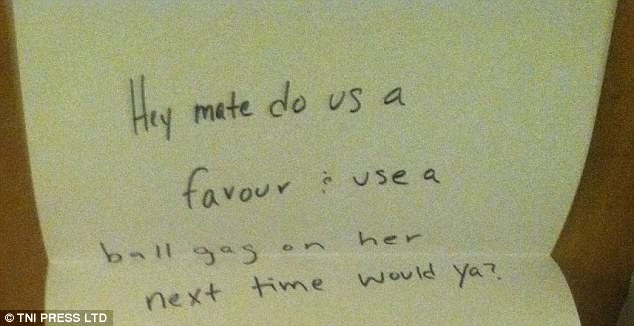 Hey mate do us a
favour & use a
ball gag on her
next time would ya?
© TNI PRESS LTD